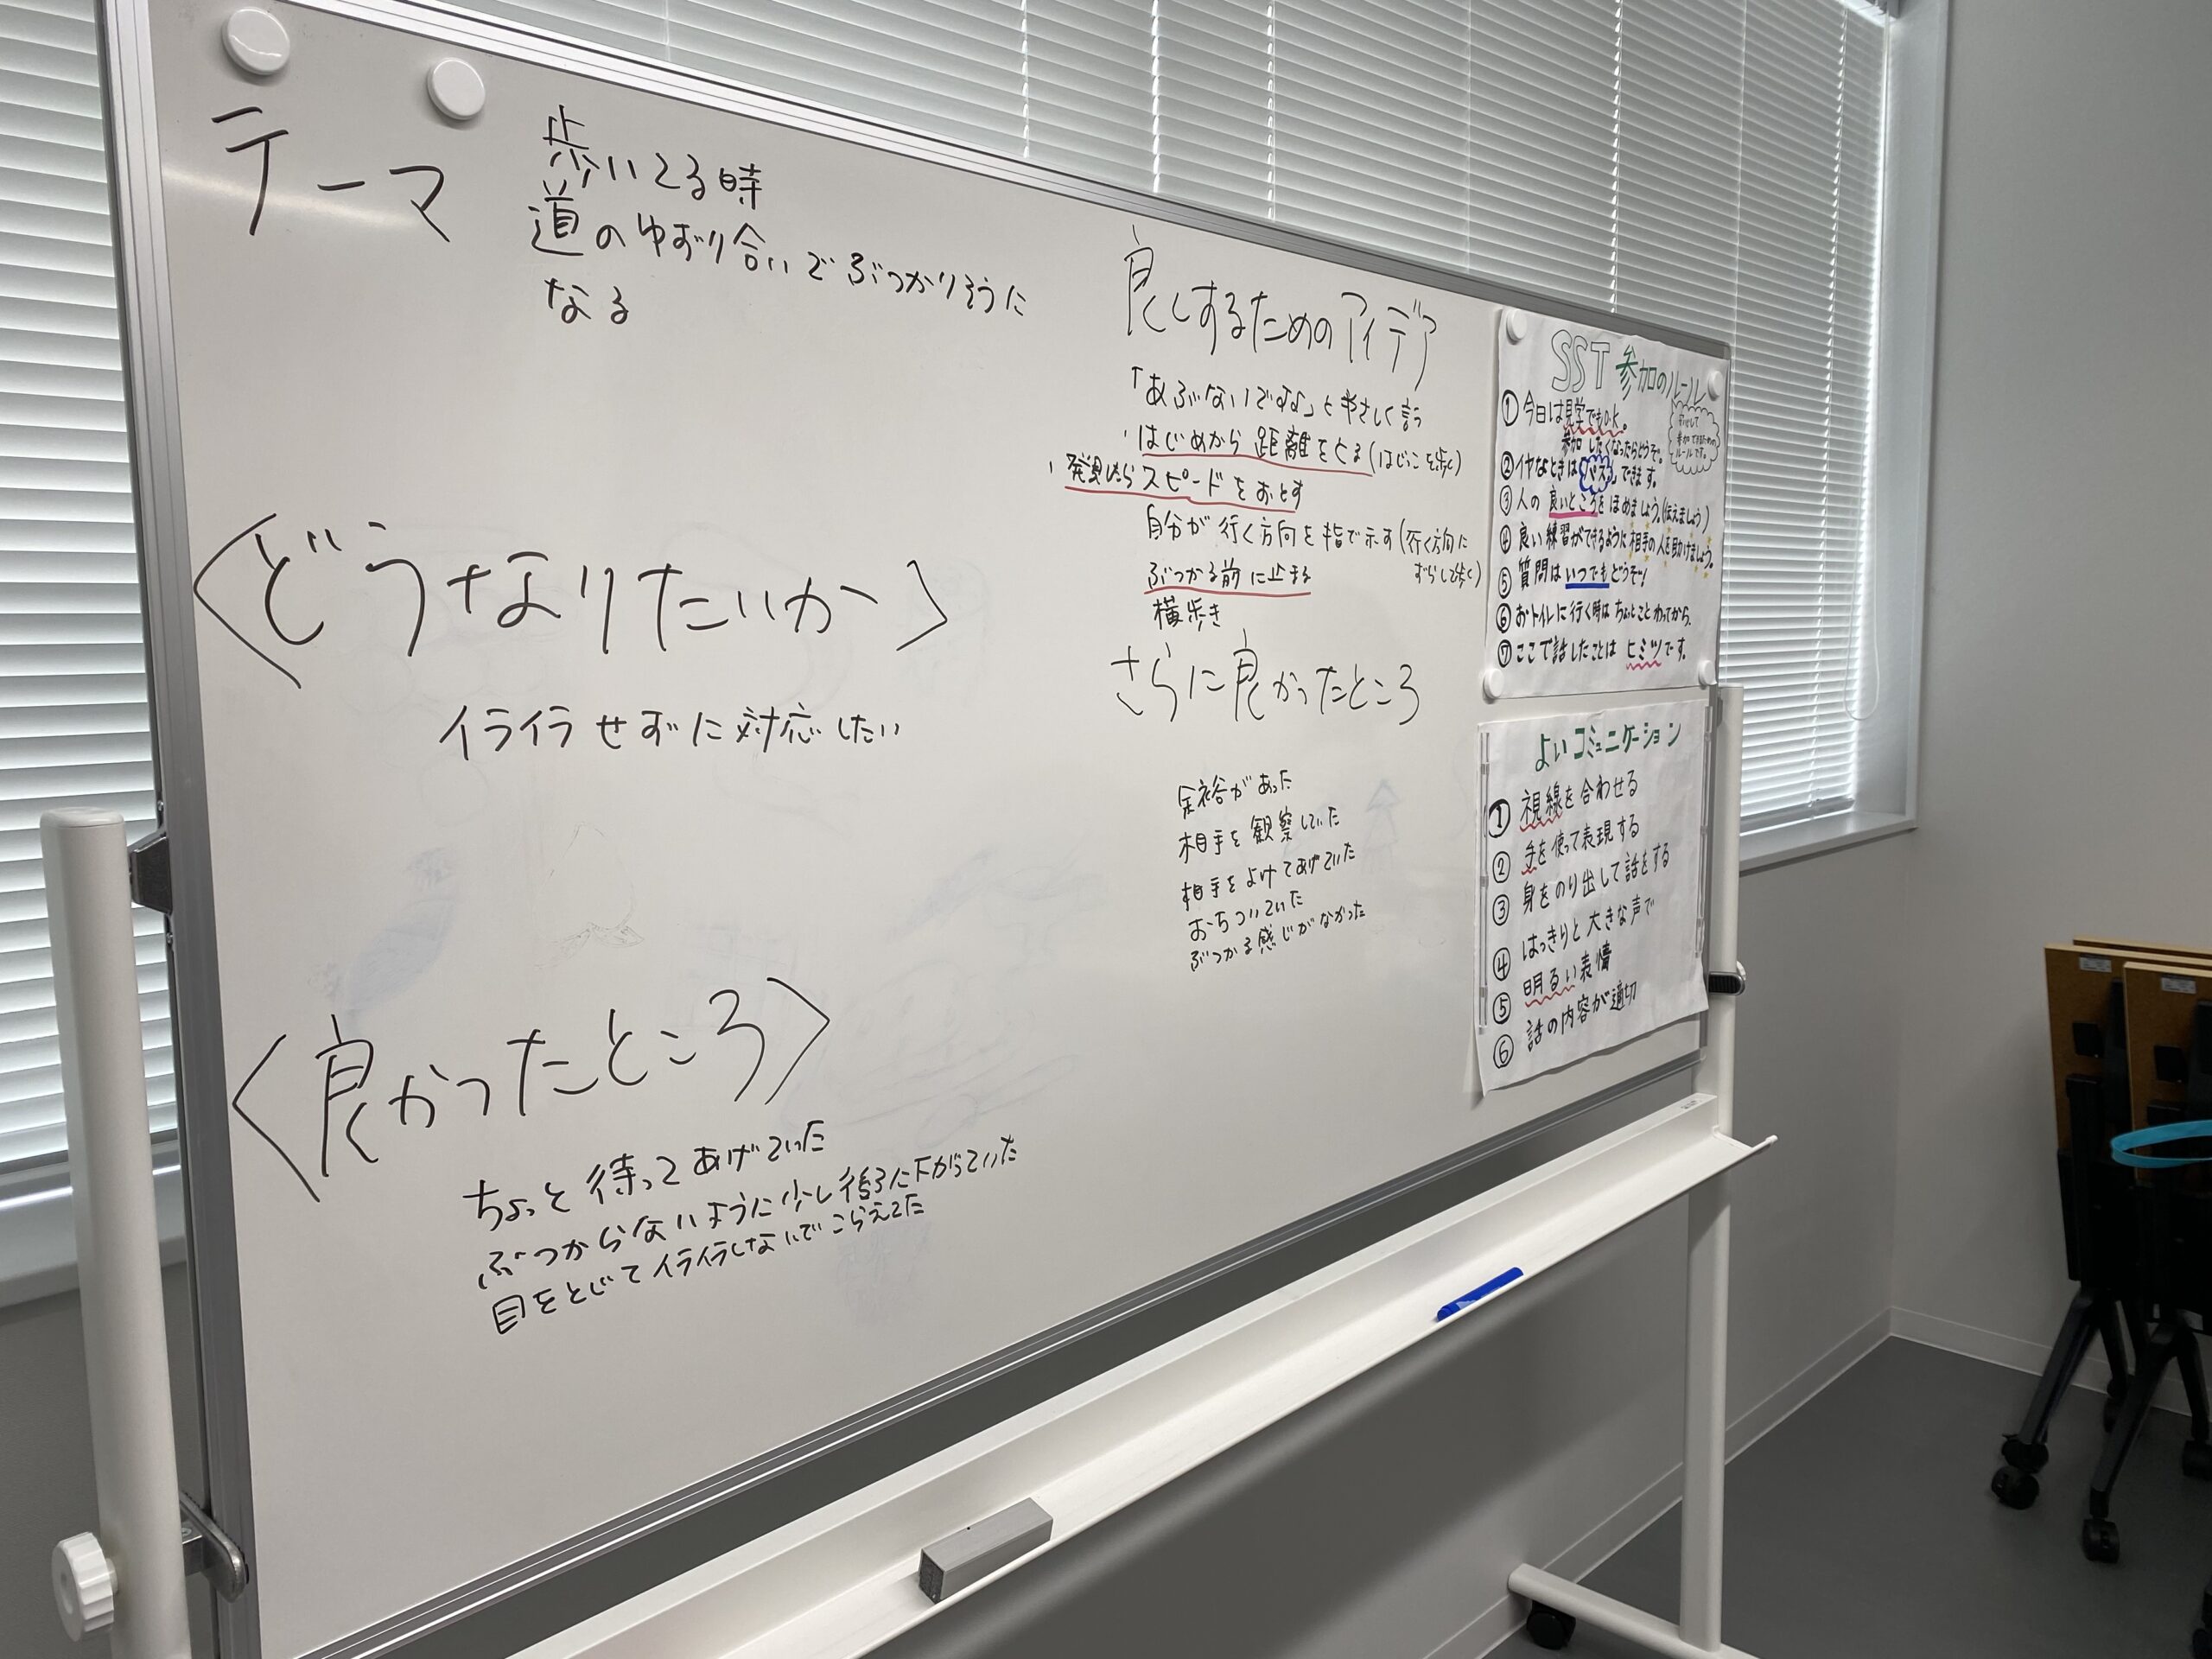 テーマ
歩いてる時
道のゆずり合いでぶつかりそうに
なる
<どうなりたいか>
イライラせずに対応したい
<良かったところ>
ちょっと待ってあげていた
ぶつからないように少し後ろに下がっていた
目をとじてイライラしないでこらえてた
良くするためのアイデア
「あぶないですよ」とやさしく言う
・はじめから距離をとる(はじっこを歩く)
・発見したらスピードをおとす
自分が行く方向を指で示す(行く方向に
ずらして歩く)
ぶつかる前に止まる
横歩き
さらに良かったところ
余裕があった
相手を観察していた
相手をよけてあげていた
おちついていた
ぶつかる感じがなかった
SST 参加のルール
①今日は見学でもOK。
参加したくなったらどうぞ。
安心して
参加できるための
ルールです。
②イヤなときは「パス」できます。
③人の良いところをほめましょう。(伝えましょう)
④良い練習ができるように相手の人を助けましょう。
⑤質問はいつでもどうぞ!
⑥おトイレに行く時はちょっとことわってから。
⑦ここで話したことはヒミツです。
よいコミュニケーション
①視線を合わせる
②手を使って表現する
③身をのり出して話をする
④はっきりと大きな声で
⑤明るい表情
⑥話の内容が適切